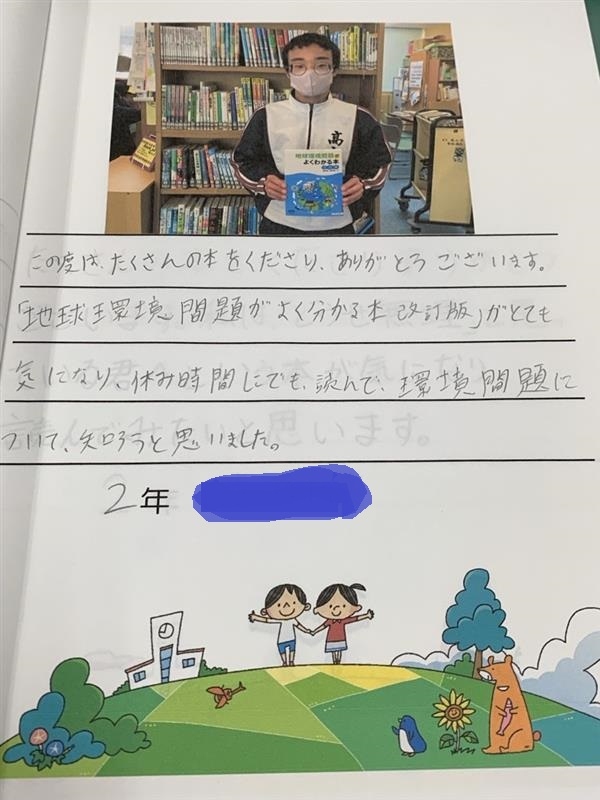 高
地球環境問題が
よくわかる本
この度は、たくさんの本をくださり、ありがとうございます。
「地球環境問題がよく分かる本 改訂版」がとても
気になり、休み時間にでも、読んで、環境問題に
ついて、知ろうと思いました。
2年